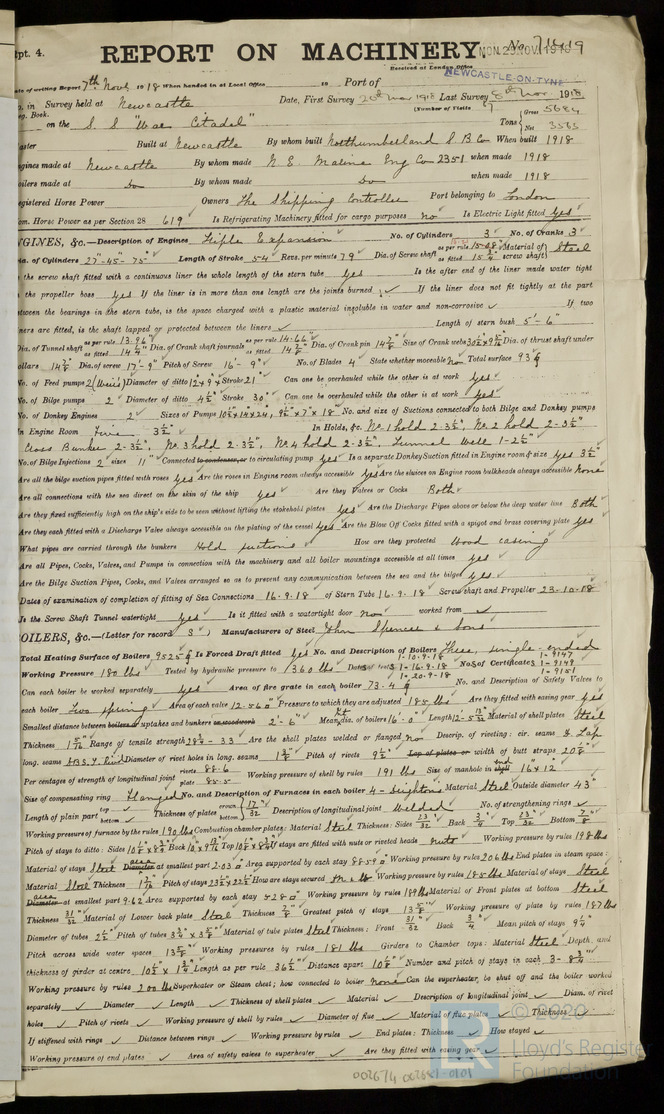 Rpt. 4.
REPORT ON MACHINERY. No. 71419
MON. 25 NOV. 1918
Received at London Office
NEWCASTLE-ON-TYNE
Date of writing Report 7th Nov. 1918 When handed in at Local Office 19 Port of
in Survey held at Newcastle Date, First Survey 1918 Last Survey 8th Nov. 1918
Reg. Book. (Number of Visits
on the S S "War Citadel" Tons Gross 5684 Net 3583
Master Built at Newcastle By whom built Northumberland S.B. Co When built 1918
Engines made at Newcastle By whom made N. E. Marine Eng Co 2351 when made 1918
Boilers made at Do By whom made Do when made 1918
Registered Horse Power Owners The Shipping Controller Port belonging to London
Nom. Horse Power as per Section 28 619 Is Refrigerating Machinery fitted for cargo purposes No Is Electric Light fitted Yes
ENGINES, &c.—Description of Engines Triple Expansion No. of Cylinders 3 No. of Cranks 3
Dia. of Cylinders 27"-45"-75" Length of Stroke 54 Revs. per minute 79 Dia. of Screw shaft as per rule 15.08 as fitted 15 3/4 Material of screw shaft Steel
Is the screw shaft fitted with a continuous liner the whole length of the stern tube Yes Is the after end of the liner made water tight
in the propeller boss Yes If the liner is in more than one length are the joints burned ✓ If the liner does not fit tightly at the part
between the bearings in the stern tube, is the space charged with a plastic material insoluble in water and non-corrosive ✓ If two
liners are fitted, is the shaft lapped or protected between the liners ✓ Length of stern bush 5'-6"
Dia. of Tunnel shaft as per rule 13.96" as fitted 14 1/4" Dia. of Crank shaft journals as per rule 14.66" as fitted 14 7/8" Dia. of Crank pin 14 7/8" Size of Crank webs Dia. of thrust shaft under
collars 14 7/8" Dia. of screw 17'-9" Pitch of Screw 16'-9" No. of Blades 4 State whether moveable No Total surface 93
No. of Feed pumps 2 (Weirs) Diameter of ditto 12" x 9" Stroke 21" Can one be overhauled while the other is at work Yes
No. of Bilge pumps 2 Diameter of ditto 4 1/2" Stroke 30" Can one be overhauled while the other is at work Yes
No. of Donkey Engines 2 Sizes of Pumps 10 1/2 x 14 x 24, 9 1/2" x 7" x 18" No. and size of Suctions connected to both Bilge and Donkey pumps
In Engine Room Five 3 1/2" In Holds, &c. No. 1 hold 2-3 1/2", No. 2 hold 2-3 1/2"
Cross Bunker 2-3 1/2", No. 3 hold 2-3 1/2", No. 4 hold 2-3 1/2", Tunnel Well 1-2 1/2"
No. of Bilge Injections 2 sizes 11" Connected to condenser, or to circulating pump Yes Is a separate Donkey Suction fitted in Engine room & size Yes 3 1/2
Are all the bilge suction pipes fitted with roses Yes Are the roses in Engine room always accessible Yes Are the sluices on Engine room bulkheads always accessible None
Are all connections with the sea direct on the skin of the ship Yes Are they Valves or Cocks Both
Are they fixed sufficiently high on the ship's side to be seen without lifting the stokehold plates Yes Are the Discharge Pipes above or below the deep water line Both
Are they each fitted with a Discharge Valve always accessible on the plating of the vessel Yes Are the Blow Off Cocks fitted with a spigot and brass covering plate Yes
What pipes are carried through the bunkers Hold suctions How are they protected Wood casing
Are all Pipes, Cocks, Valves, and Pumps in connection with the machinery and all boiler mountings accessible at all times Yes
Are the Bilge Suction Pipes, Cocks, and Valves arranged so as to prevent any communication between the sea and the bilges Yes
Dates of examination of completion of fitting of Sea Connections 16.9.18 of Stern Tube 16.9.18 Screw shaft and Propeller 23-10-18
Is the Screw Shaft Tunnel watertight Yes Is it fitted with a watertight door No worked from ✓
BOILERS, &c.—(Letter for record S) Manufacturers of Steel John Spencer & Sons
Total Heating Surface of Boilers 9525 Is Forced Draft fitted Yes No. and Description of Boilers Three, single-ended
Working Pressure 180 lbs Tested by hydraulic pressure to 360 lbs Date of test 1-13.9.18 1-16.9.18 1-20.9.18 No. of Certificates 1-9147 1-9149 1-9151
Can each boiler be worked separately Yes Area of fire grate in each boiler 73.4 No. and Description of Safety Valves to
each boiler Two spring Area of each valve 12.56 Pressure to which they are adjusted 185 lbs Are they fitted with easing gear Yes
Smallest distance between boilers or uptakes and bunkers or woodwork 2'-6" Mean dia. of boilers 16'-0" Length Material of shell plates Steel
Thickness Range of tensile strength 28 3/4-33 Are the shell plates welded or flanged No Descrip. of riveting: cir. seams Lap
long. seams Diameter of rivet holes in long. seams Pitch of rivets 9 1/2" Lap of plates or width of butt straps
Per centages of strength of longitudinal joint rivets 88.6 plate 85.5 Working pressure of shell by rules 191 lbs Size of manhole in end 16" x 12"
Size of compensating ring Flanged No. and Description of Furnaces in each boiler 4 - Deightons Material Steel Outside diameter 43"
Length of plain part top ✓ bottom ✓ Thickness of plates crown bottom 17/32" Description of longitudinal joint Welded No. of strengthening rings ✓
Working pressure of furnace by the rules 190 lbs Combustion chamber plates: Material Steel Thickness: Sides 23/32 Back 3/4 Top 23/32 Bottom 7/8
Pitch of stays to ditto: Sides Back Top If stays are fitted with nuts or riveted heads nuts Working pressure by rules 198 lbs
Material of stays Steel Area at smallest part 2.03 Area supported by each stay 88.59 Working pressure by rules 206 lbs End plates in steam space:
Material Steel Thickness Pitch of stays How are stays secured Working pressure by rules 185 lbs Material of stays Steel
Area at smallest part 9.62 Area supported by each stay 428 Working pressure by rules 189 lbs Material of Front plates at bottom Steel
Thickness 31/32 Material of Lower back plate Steel Thickness 7/8" Greatest pitch of stays Working pressure of plate by rules 187 lbs
Diameter of tubes 2 1/2 Pitch of tubes Material of tube plates Steel Thickness: Front 31/32 Back 3/4 Mean pitch of stays 9 1/4"
Pitch across wide water spaces Working pressures by rules 181 lbs Girders to Chamber tops: Material Steel Depth and
thickness of girder at centre Length as per rule 36 1/2 Distance apart Number and pitch of stays in each 3 - 8 3/4"
Working pressure by rules 200 lbs Superheater or Steam chest; how connected to boiler None Can the superheater be shut off and the boiler worked
separately ✓ Diameter ✓ Length ✓ Thickness of shell plates ✓ Material ✓ Description of longitudinal joint ✓ Diam. of rivet
holes ✓ Pitch of rivets ✓ Working pressure of shell by rules ✓ Diameter of flue ✓ Material of flue plates ✓ Thickness ✓
If stiffened with rings ✓ Distance between rings ✓ Working pressure by rules ✓ End plates: Thickness ✓ How stayed ✓
Working pressure of end plates ✓ Area of safety valves to superheater ✓ Are they fitted with easing gear ✓
© 2020
Lloyd's Register
Foundation
002674-002681-0101